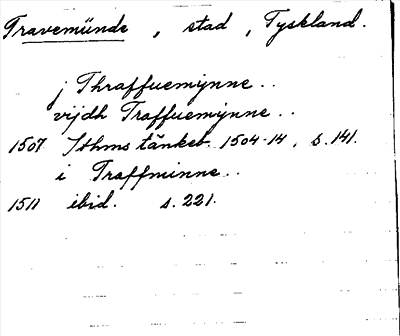 Travemünde, stad, Tyskland.
j Thraffuemÿnne..
vijdh Traffuemÿnne..
1507 Sthms tänkeb. 1504-14, s. 141.
i Traffminne..
1511 ibid. s. 221.